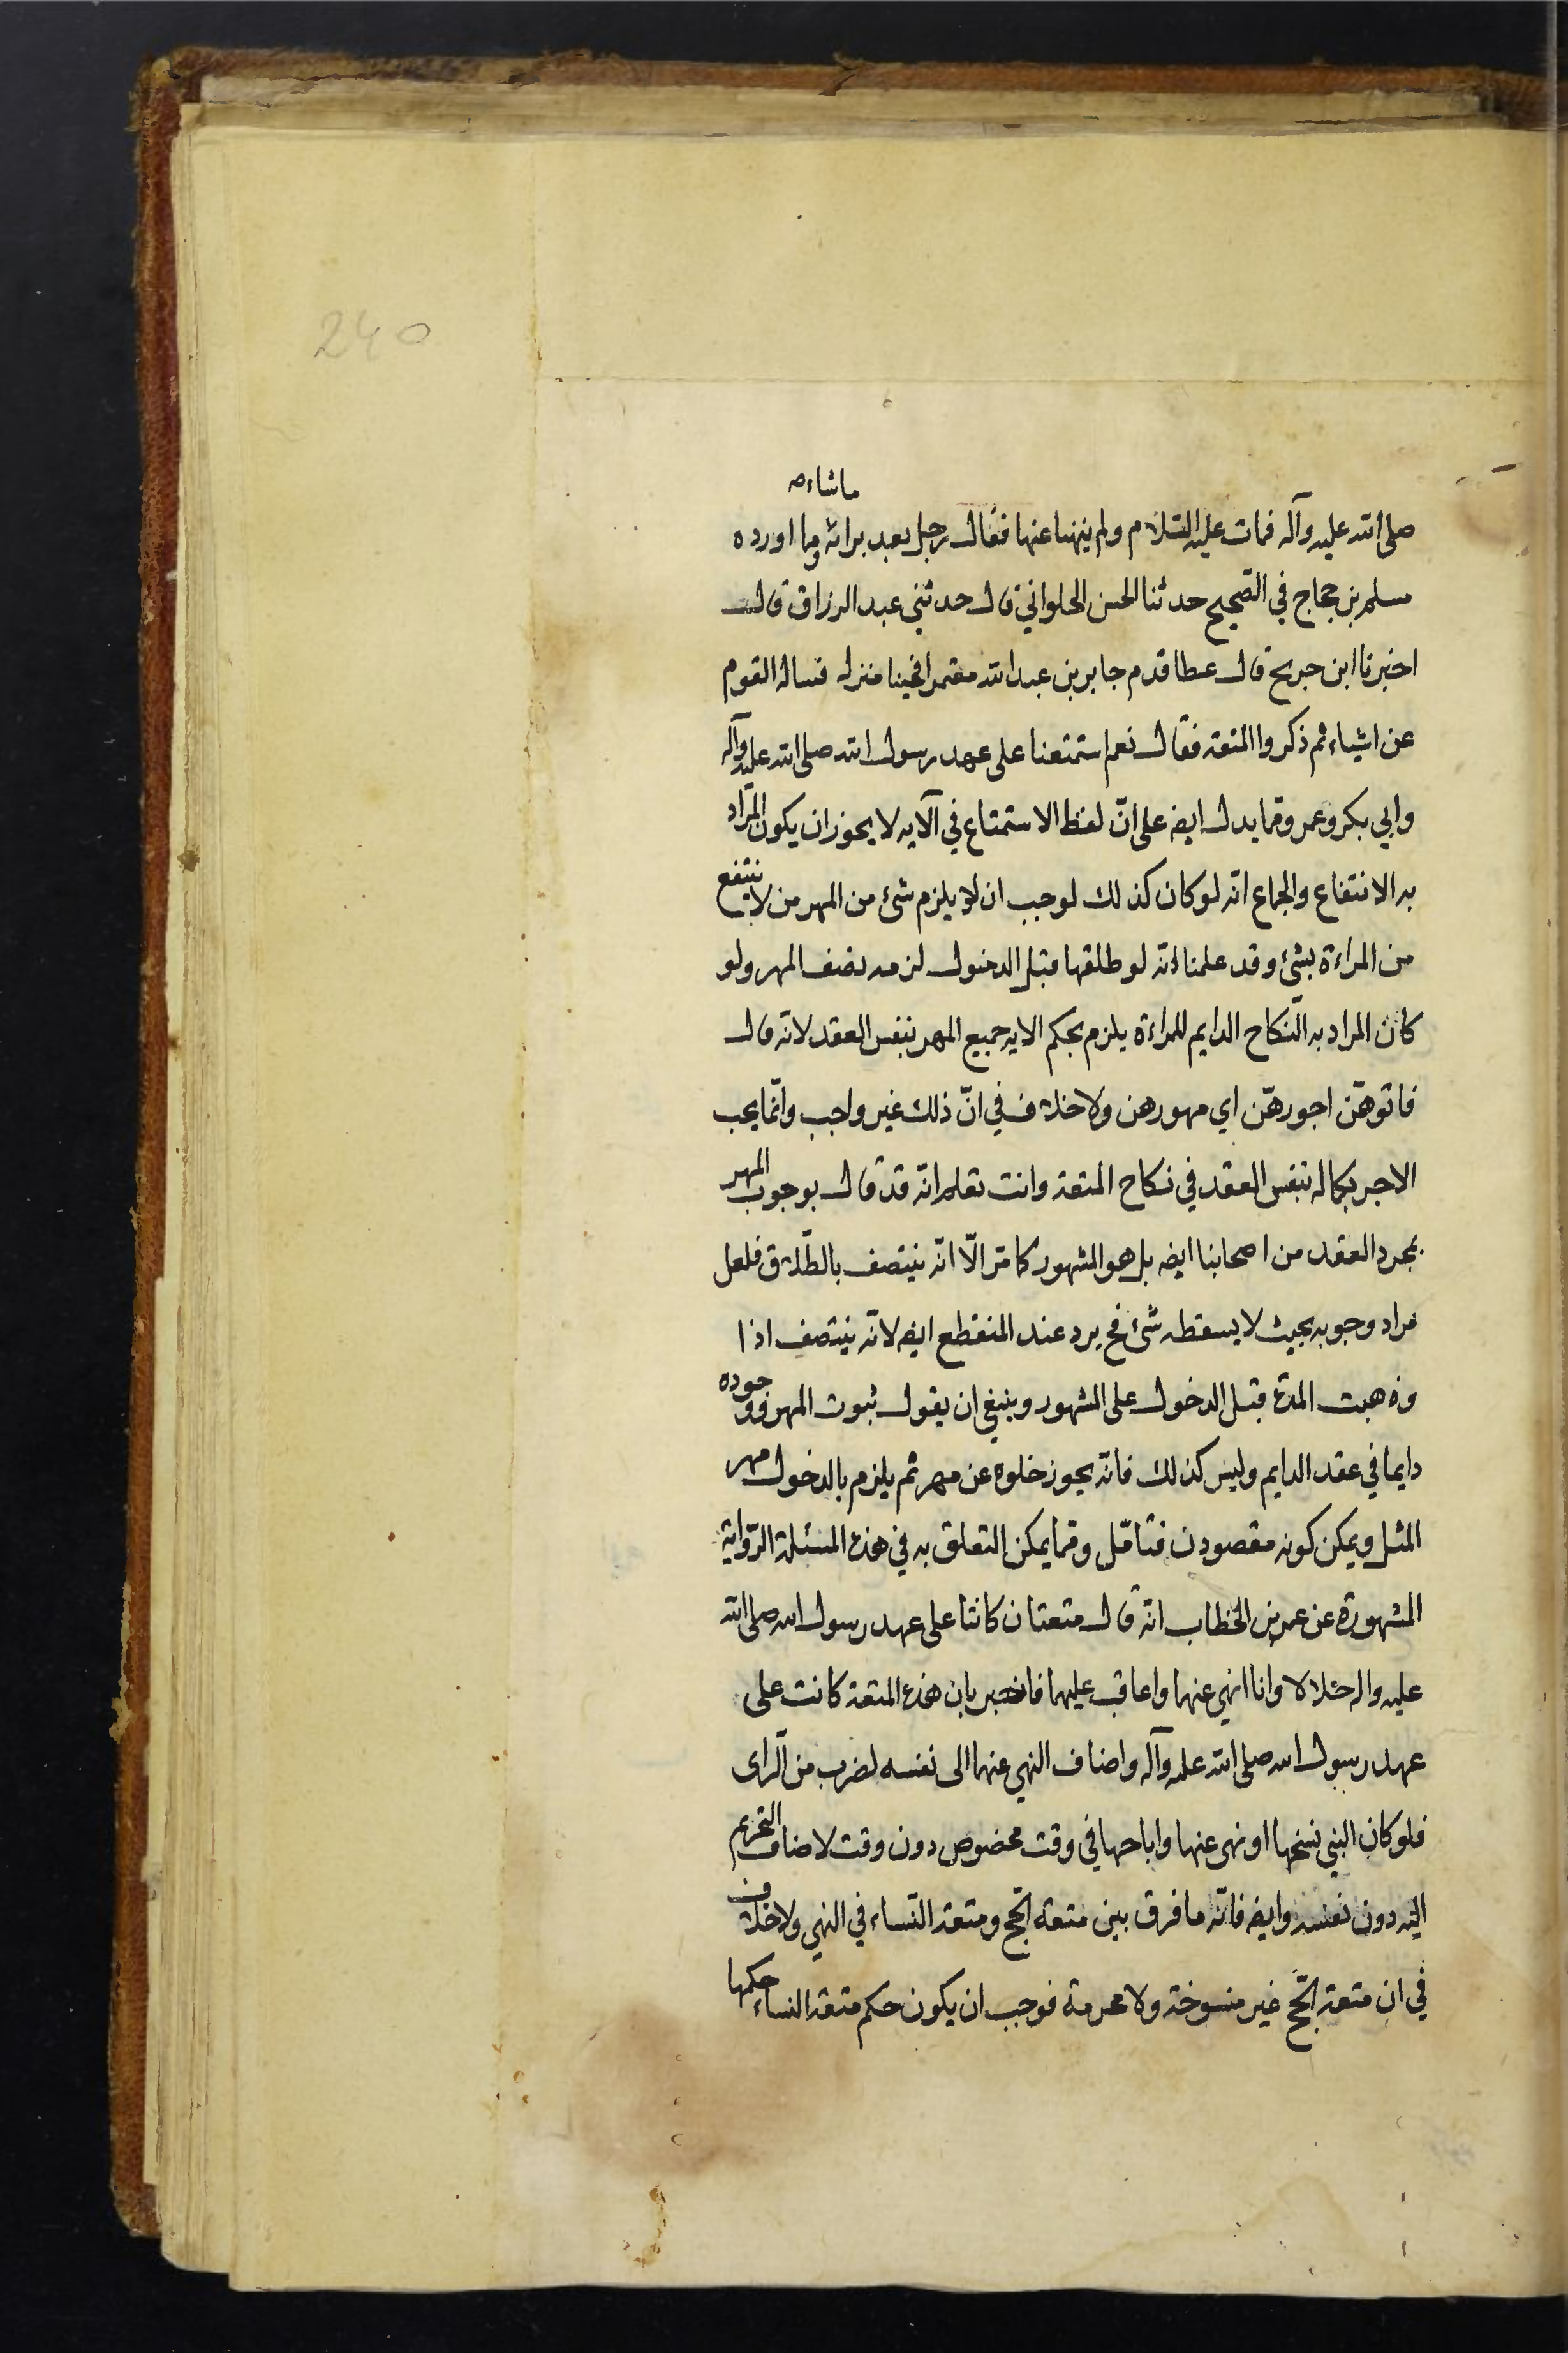 240
ماشاء
صلى الله عليه وآله فمات عليه السلام ولم ينهنا عنها فقال رجل بعد برائه وما اورده
مسلم بن حجاج في الصّحيح حدثنا الحسن الحلواني قال حدثني عبد الرزاق قال
اخبرنا ابن جريح قال عطا قدم جابر بن عبد الله معتمرا فجينا منزله فساله القوم
عن اشياء ثم ذكروا المتعة فقال نعم استمتعنا على عهد رسول الله صلى الله عليه وآله
وابي بكر وعمر وممّا يدل ايضه على انّ لفظ الاستمتاع في الآيه لا يجوز ان يكون المراد
به الانتفاع والجماع انه لو كان كذلك لوجب ان لا يلزم شئ من المهر من لا ينتفع
من المراءة بشئ وقد علمنا انه لو طلقها قبل الدخول لزمه نصف المهر ولو
كان المراد به النّكاح الدايم للمراءة يلزم بحكم الايه جميع المهر بنفس العقد لانه قال
فاتوهنّ اجورهنّ اي مهورهن ولا خلاف في انّ ذلك غير واجب وانّما يجب
الاجر بكماله بنفس العقد في نكاح المتعة وانت تعلم انّه قد قال بوجوب المهر
بمجرد العقد من اصحابنا ايضه بل هو المشهور كما مرّ الّا انّه ينتصف بالطّلاق فلعل
مراد وجوبه بحيث لا يسقطه شئ فح يرد عند المنقطع ايضه لانّه ينتصف اذا
وذهبت المدّة قبل الدخول على المشهور وينبغي ان يقول ثبوت المهر ووجوده
دايما في عقد الدايم وليس كذلك فانّه يجوز خلوه عن مهر ثم يلزم بالدخول مهر
المثل ويمكن كونه مقصودن فتامّل وممّا يمكن التعلق به في هذه المسئلة الرّواية
المشهورة عن عمر بن الخطاب انّه قال متعتان كانتا على عهد رسول الله صلى الله
عليه واله حلالا وانا انهي عنهما واعاقب عليهما فاخبر بان هذه المتعة كانت على
عهد رسول الله صلى الله عليه وآله واضاف النهي عنهما الى نفسه لضرب من الرّاى
فلو كان النبي نسخها او نهى عنها واباحها في وقت مخصوص دون وقت لاضاف التحريم
اليه دون نفسه وايضه فانّه ما فرق بين متعة الحّج ومتعة النّساء في النهي ولا خلاف
في ان متعة الحّج غير منسوخة ولا محرمة فوجب ان يكون حكم متعة النساء حكمها